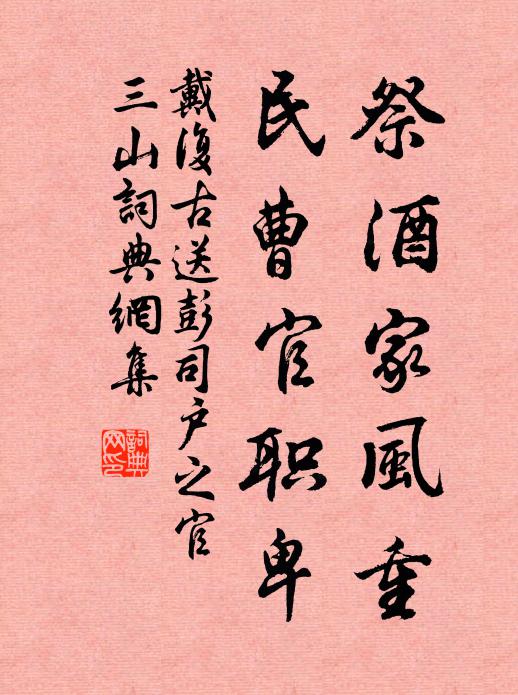 祭酒家風重
民曹官职卑
戴復古送彭司户之官
三山詞典網集
詞典網印